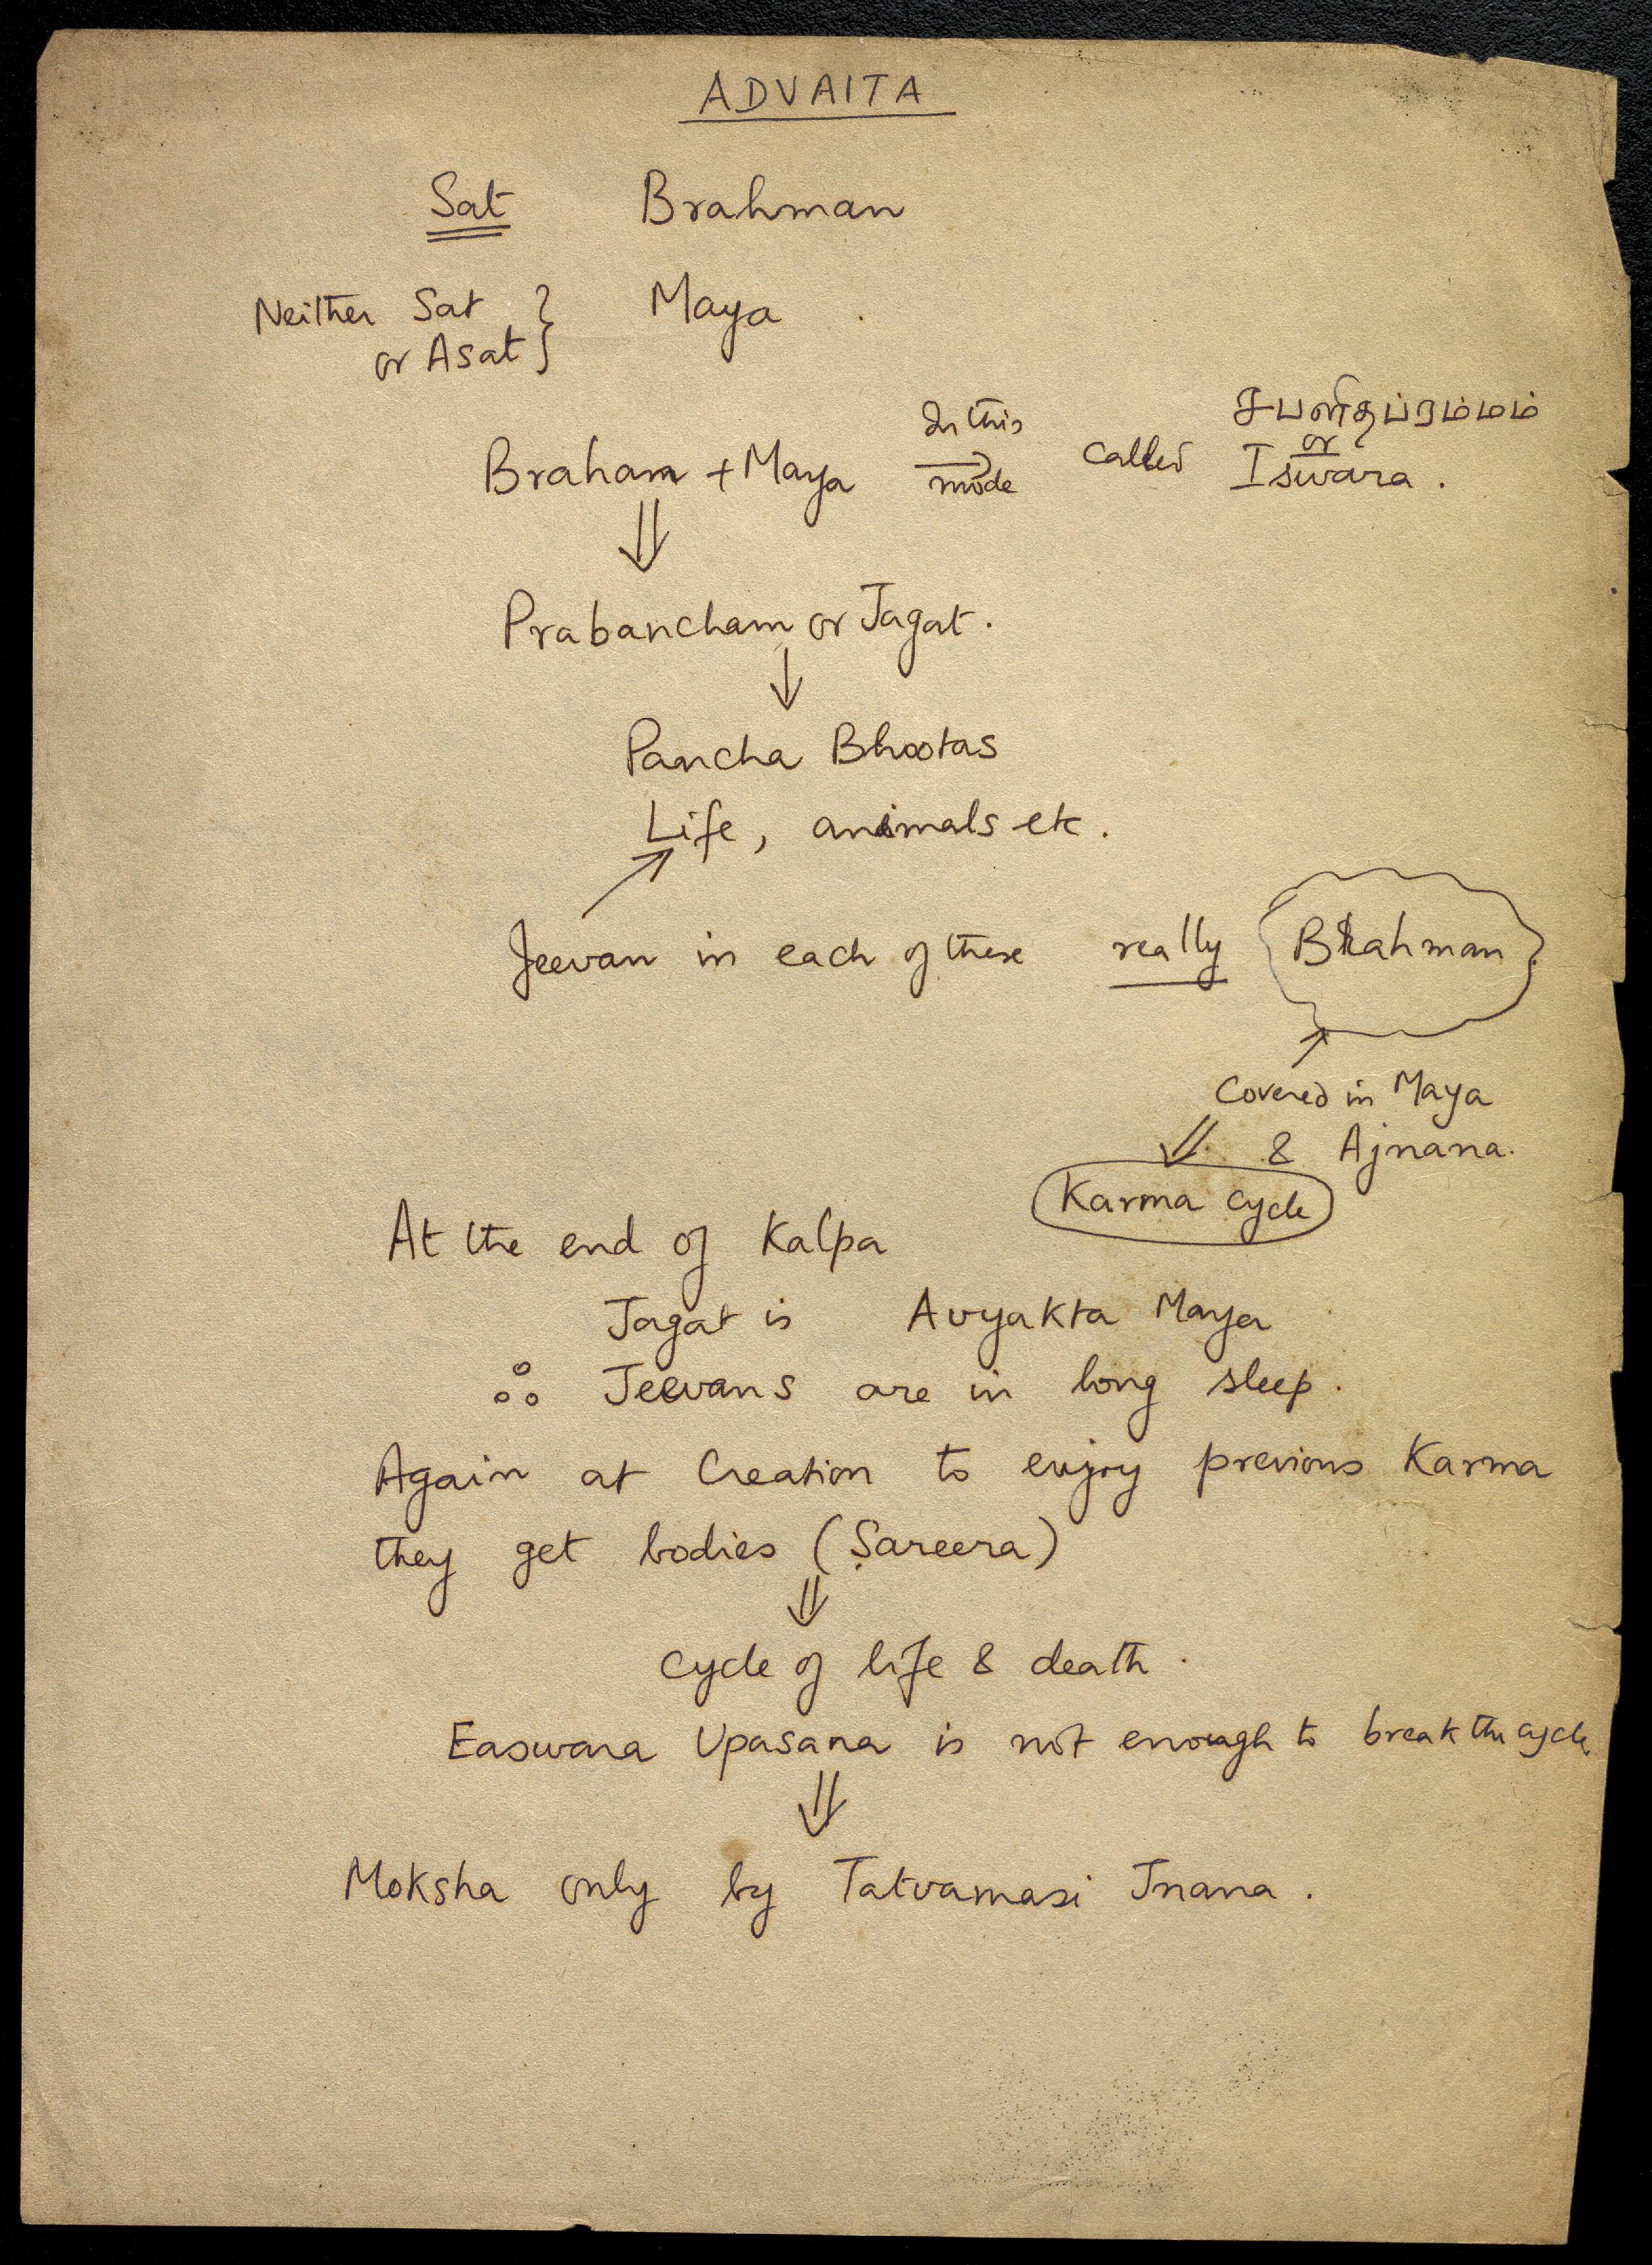 ADVAITA
Sat Brahman
Neither Sat } Maya
or Asat }
Braham + Maya In this mode called or Iswara.
⇓
Prabancham or Jagat.
↓
Pancha Bhootas
Life, animals etc.
Jeevan in each of these really Brahman
Covered in Maya
& Ajnana.
Karma cycle
At the end of Kalpa
Jagat is Avyakta Maya
∴ Jeevans are in long sleep.
Again at Creation to enjoy previous Karma
they get bodies (Sareera)
⇓
cycle of life & death.
Easwara Upasana is not enough to break the cycle
⇓
Moksha only by Tatvamasi Jnana.